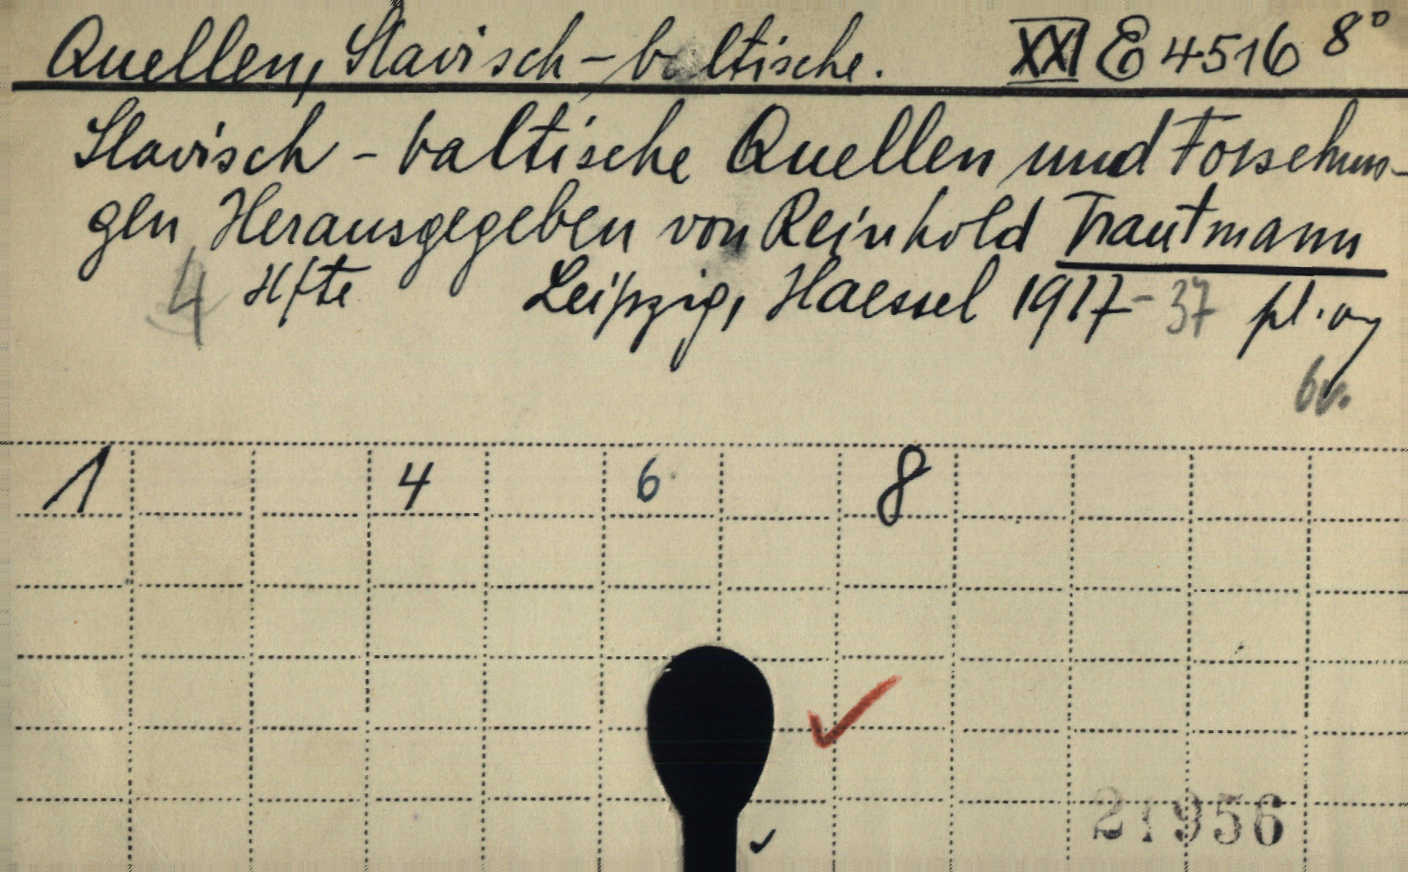 Quellen, Slavisch-baltische. XXI E 4516 8°
Slavisch-baltische Quellen und Forschun-
gen Herausgegeben von Reinhold Trautmann
4 Hfte Leipzig, Haessel 1917-37
1 4 6 8
21956